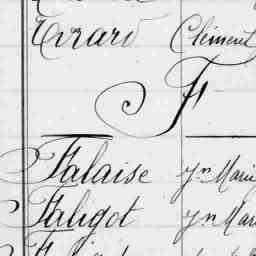 Evrard Clément
F
Falaise Jn Marie
Faligot Jn Mari